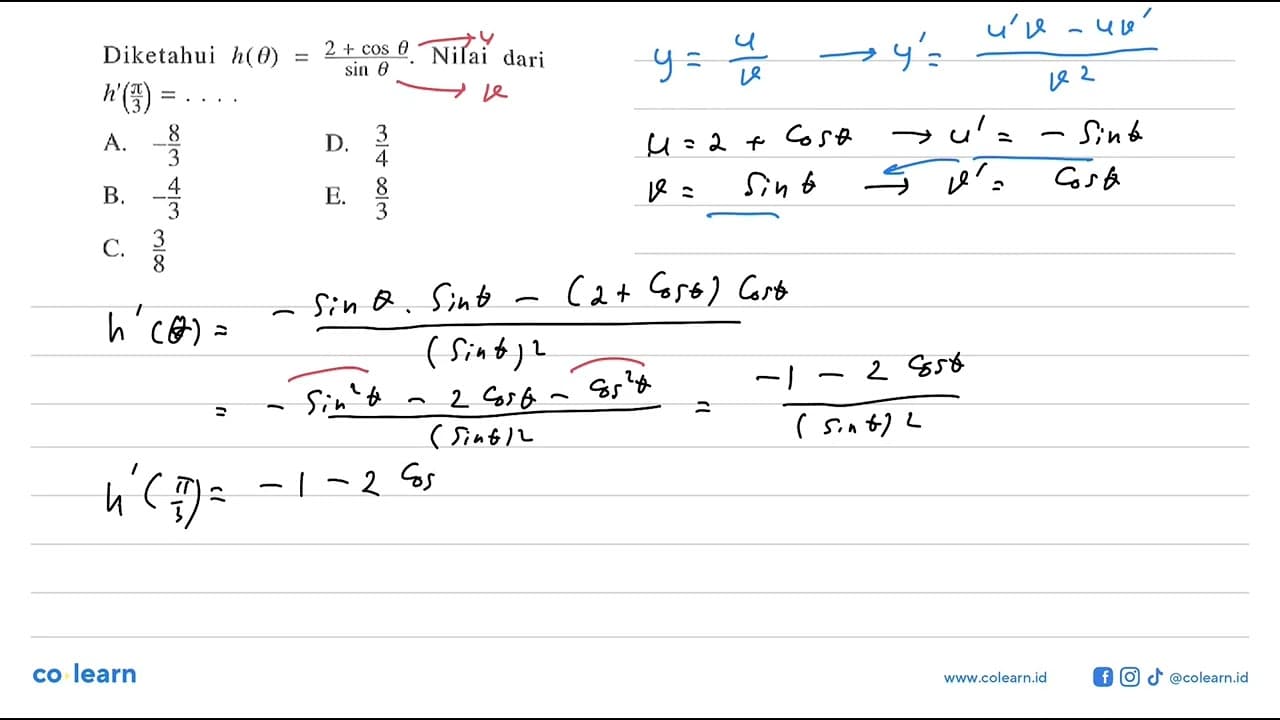 Diketahui h(θ) = \frac{2 + cos θ}{sin θ}. Nilai dari
h'(π/3) = . . . .
A. -8/3
B. -4/3
C. 3/8
D. 3/4
E. 8/3
u
v
y = u/v → y' = \frac{u'v - uv'}{v^2}
u = 2 + Cos θ → u' = - Sin θ
v = Sin θ → v' = Cos θ
h'(θ) = \frac{- Sin θ . Sin θ - (2 + Cos θ) Cos θ}{(Sin θ)^2}
= \frac{- Sin²θ - 2 Cos θ - Cos²θ}{(Sin θ)^2} = \frac{-1 - 2 Cos θ}{(Sin θ)^2}
h'(π/3) = -1 - 2 Cos
co learn
www.colearn.id
@colearn.id